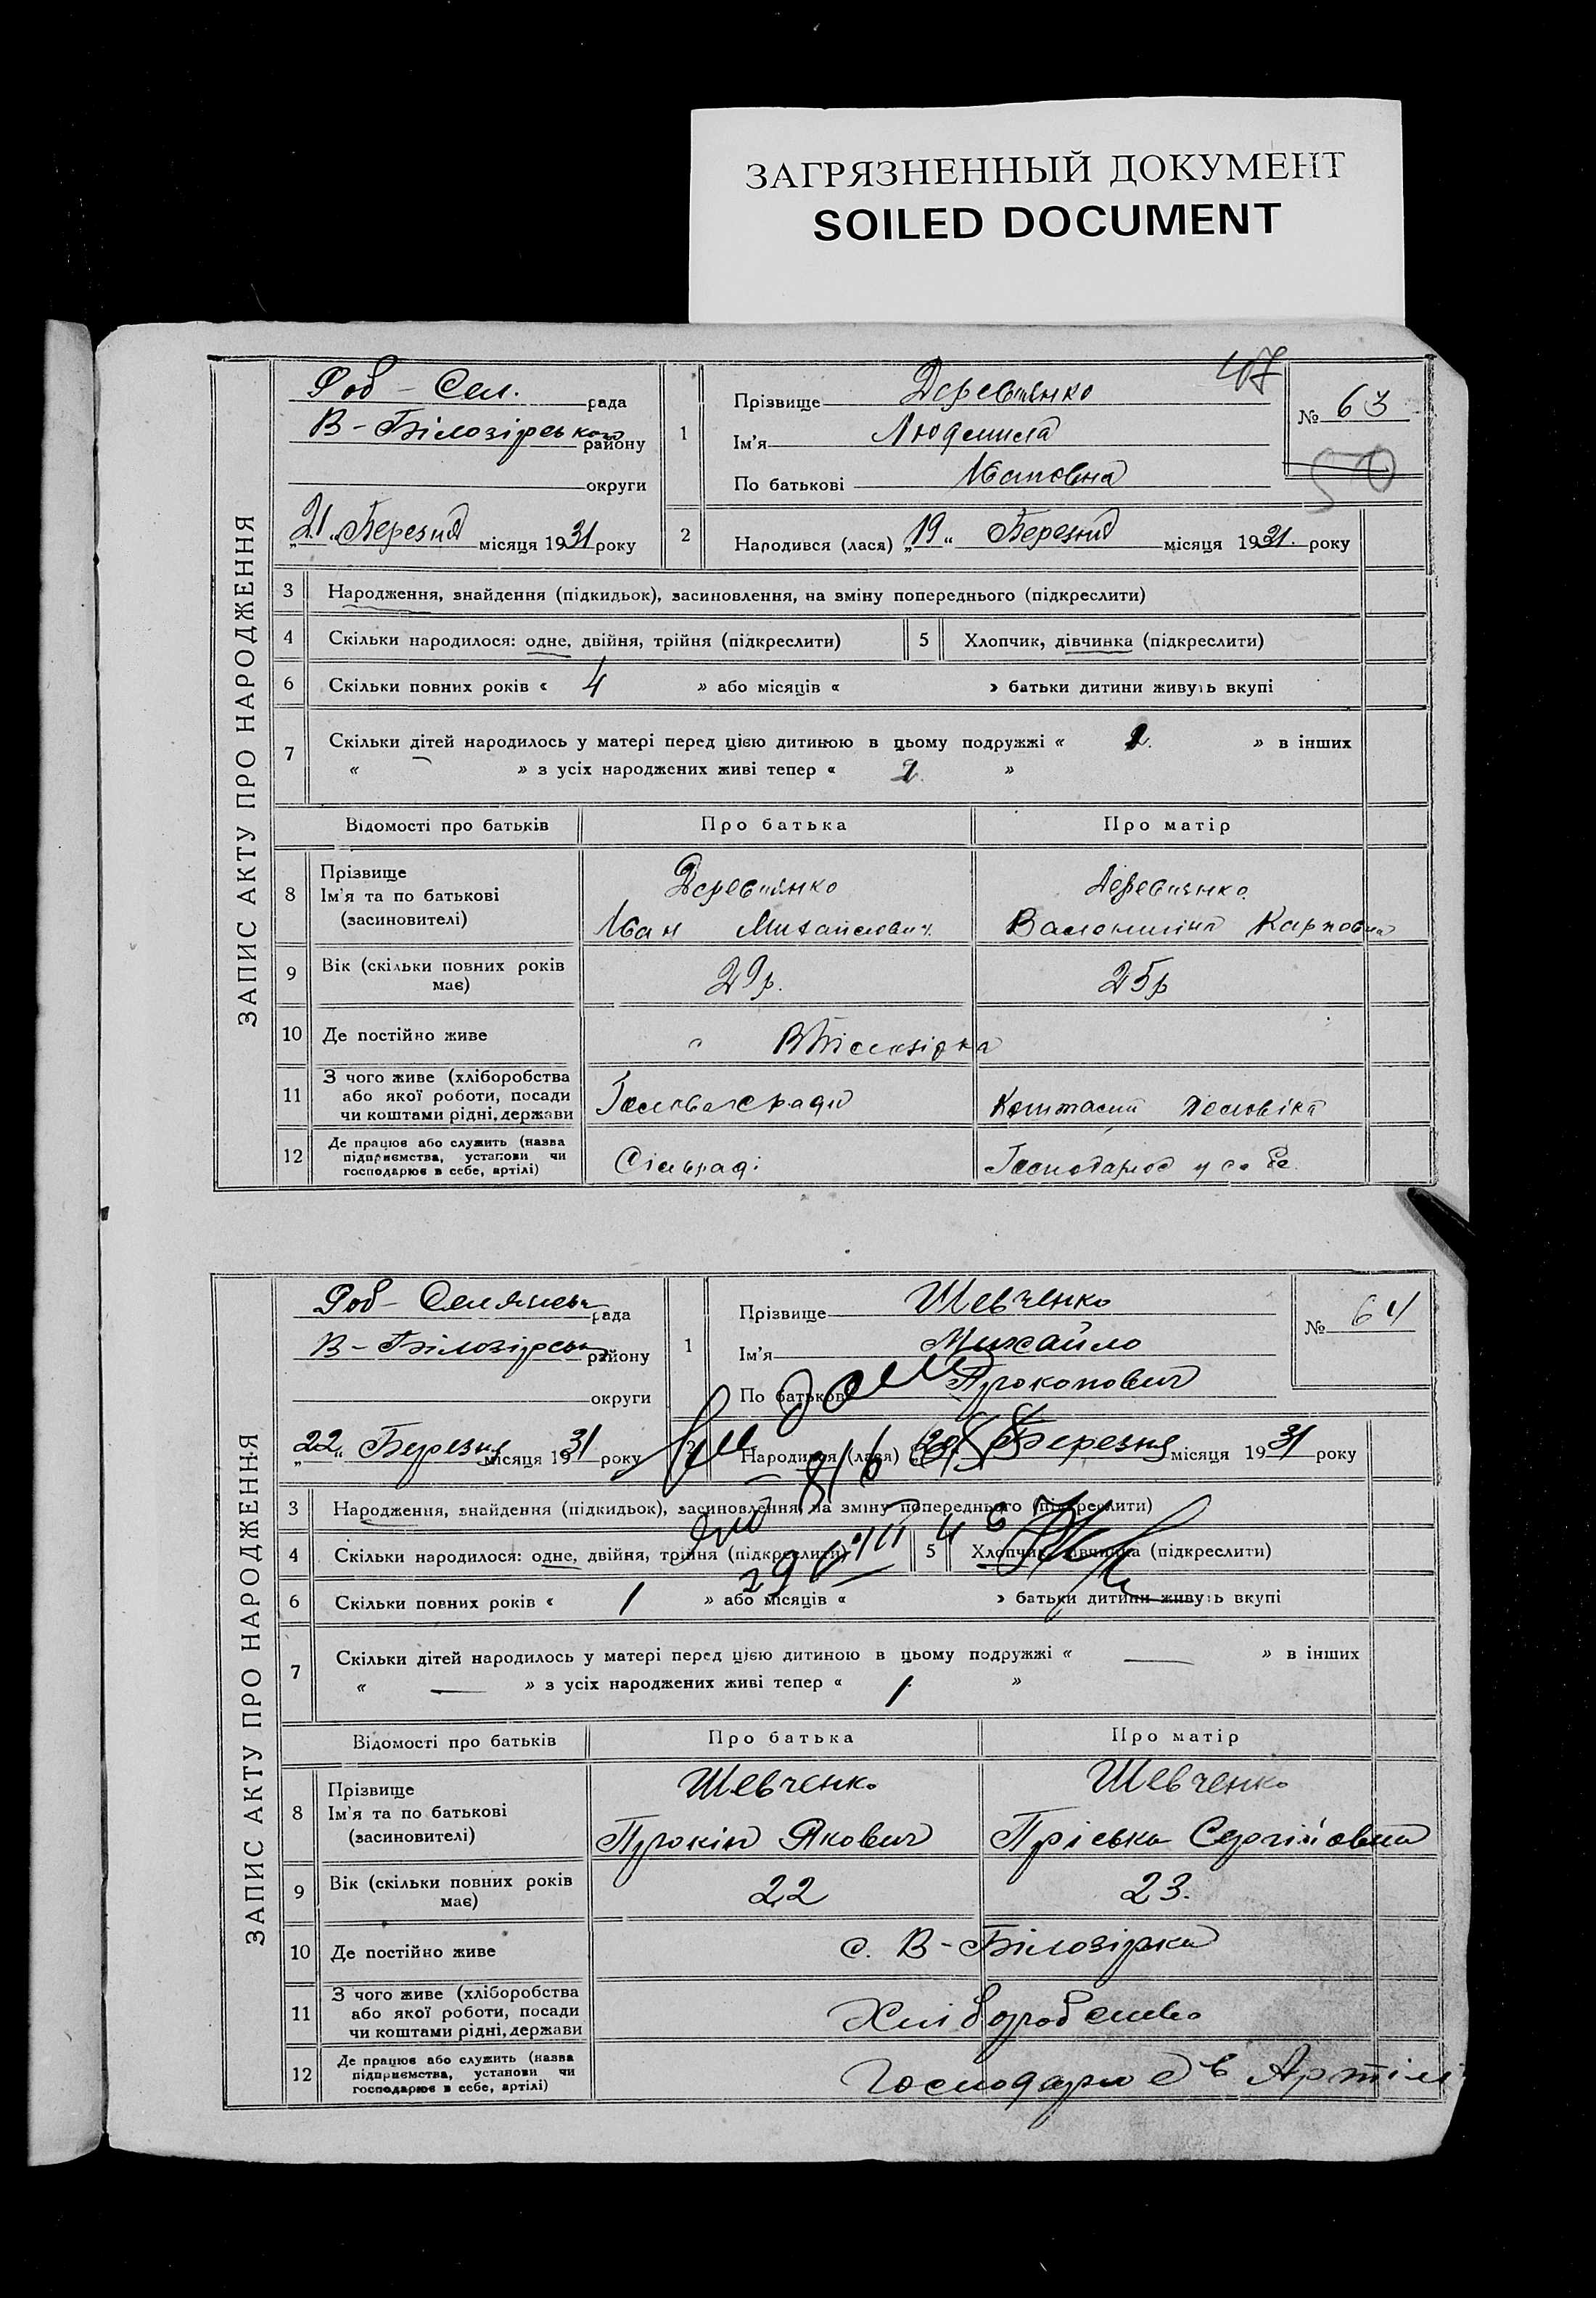 ЗАГРЯЗНЕННЫЙ ДОКУМЕНТ
SOILED DOCUMENT
47
ЗАПИС АКТУ ПРО НАРОДЖЕННЯ
Роб - Сел. рада
В - Білозірського району
округи
21 „ Березня місяця 1931 року
1 Прізвище Деревянко
Ім'я Людмила
По батькові Івановна
№ 63
50
2 Народився (лася) „19“ Березня місяця 1931. року
3 Народження, знайдення (підкидьок), засиновлення, на зміну попереднього (підкреслити)
4 Скільки народилося: одне, двійня, трійня (підкреслити) 5 Хлопчик, дівчинка (підкреслити)
6 Скільки повних років « 4 » або місяців « » батьки дитини живуть вкупі
7 Скільки дітей народилось у матері перед цією дитиною в цьому подружжі « » в інших
« – » з усіх народжених живі тепер « »
Відомості про батьків Про батька Про матір
8 Прізвище Деревянко Деревянко
Ім'я та по батькові
(засиновителі) Іван Михайлович Карповна
9 Вік (скільки повних років має) 29 р. 25 р
10 Де постійно живе ВБілозірка
11 З чого живе (хліборобства
або якої роботи, посади
чи коштами рідні, держави Коштами чоловіка
12 Де працює або служить (назва
підприємства, установи чи
господарює в себе, артілі) Сільраді Господарює у себе
ЗАПИС АКТУ ПРО НАРОДЖЕННЯ
Роб - Селянськ рада
В - Білозірськ району
округи
„22“ Березня місяця 1931 року
1 Прізвище Шевченко
Ім'я Михайло
По батькові Прокопович
№ 64
2 Народився (лася) 20 Березня місяця 1931 року
3 Народження, знайдення (підкидьок), засиновлення, на зміну попереднього (підкреслити)
4 Скільки народилося: одне, двійня, трійня (підкреслити) 5 Хлопчик, дівчинка (підкреслити)
6 Скільки повних років « 1 » або місяців « » батьки дитини живуть вкупі
7 Скільки дітей народилось у матері перед цією дитиною в цьому подружжі « — » в інших
« — » з усіх народжених живі тепер « 1 »
Відомості про батьків Про батька Про матір
8 Прізвище Шевченко Шевченко
Ім'я та по батькові
(засиновителі) Прокіп Якович Пріська Сергійовна
9 Вік (скільки повних років має) 22 23.
10 Де постійно живе с. В - Білозірка
11 З чого живе (хліборобства
або якої роботи, посади
чи коштами рідні, держави Хліборобство
12 Де працює або служить (назва
підприємства, установи чи
господарює в себе, артілі) Господарює в Артілі